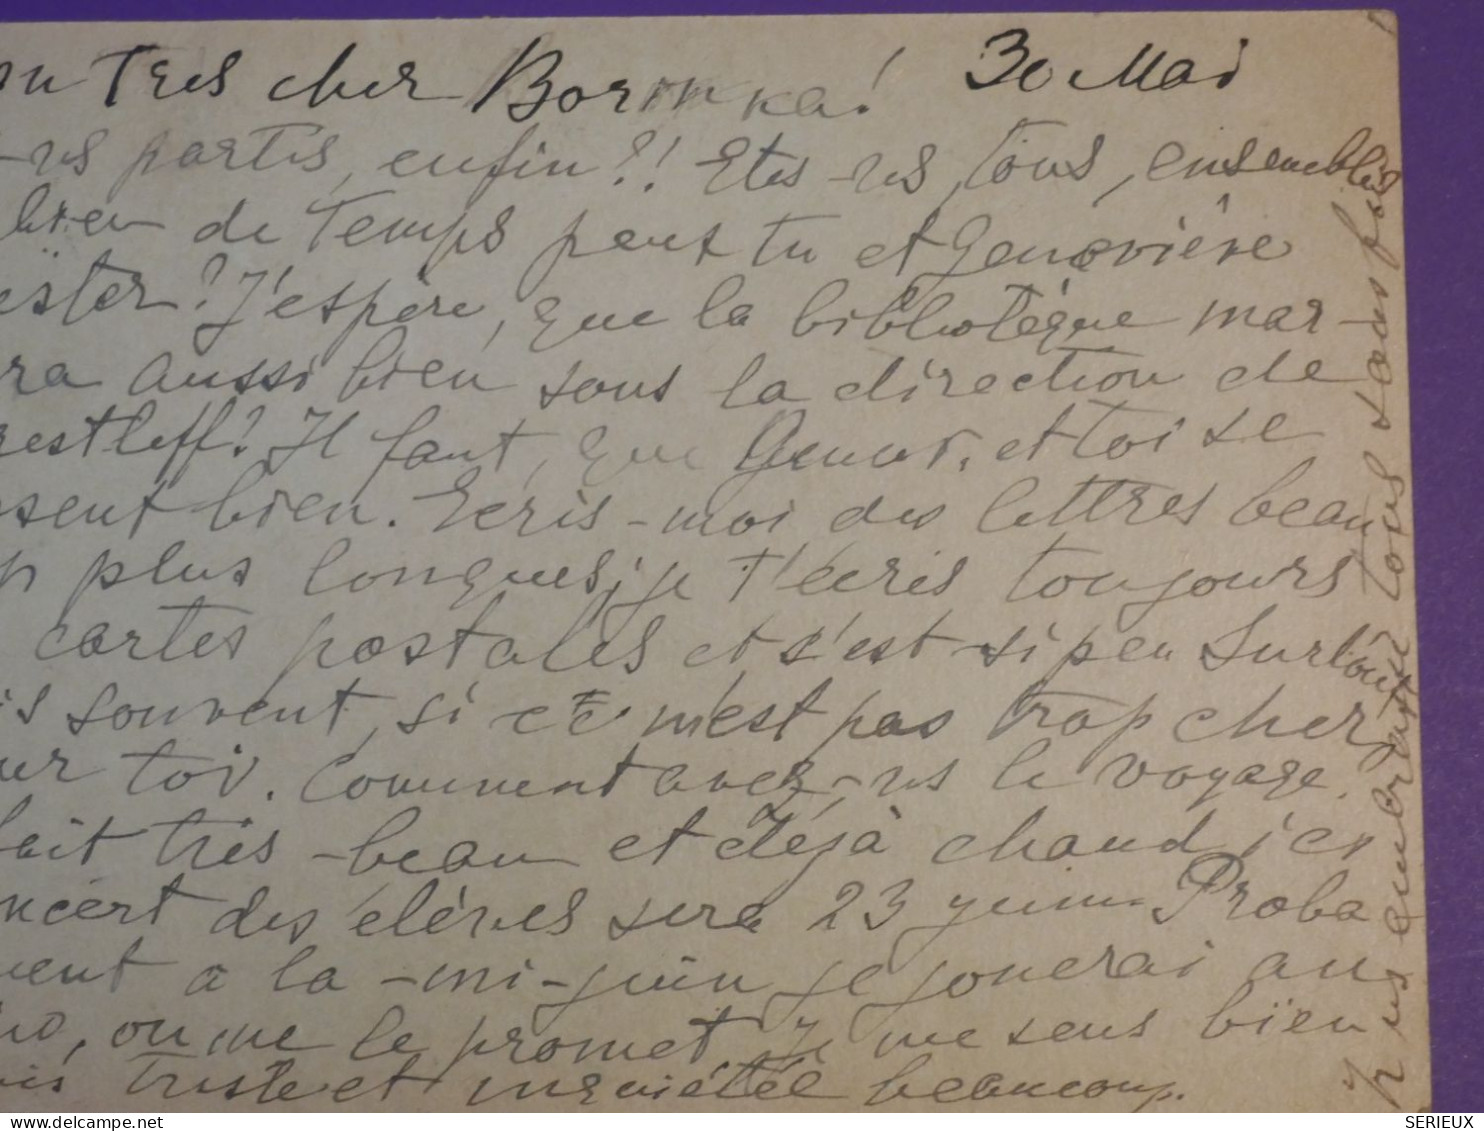 on Tres cher Borinka! 30 Mai
-vs partis, enfin?! Etes-vs, tous, ensembles
bien de Temps peux tu et Geneviève
ester? J'espère, que la bibliotèque mar-
ra aussi bien sous la direction de
restleff? Il faut, que Genev. et toi se
sent bien. Ecris-moi des lettres beau
p plus longues, je t'écris toujours
cartes postales et s'est si peu. Surtout
is souvent, si ce n'est pas trop cher
ur toi. Comment avez-vs le voyage.
fait très-beau et déjà chaud ici
ncert des élèves sera 23 juin. Proba
ment a la-mi-juin je jouerai au
, on me le promet. Je me sens bien
is triste et inquiétée beaucoup.
vs embrasse tous sans fois
www.delcampe.net
SERIEUX